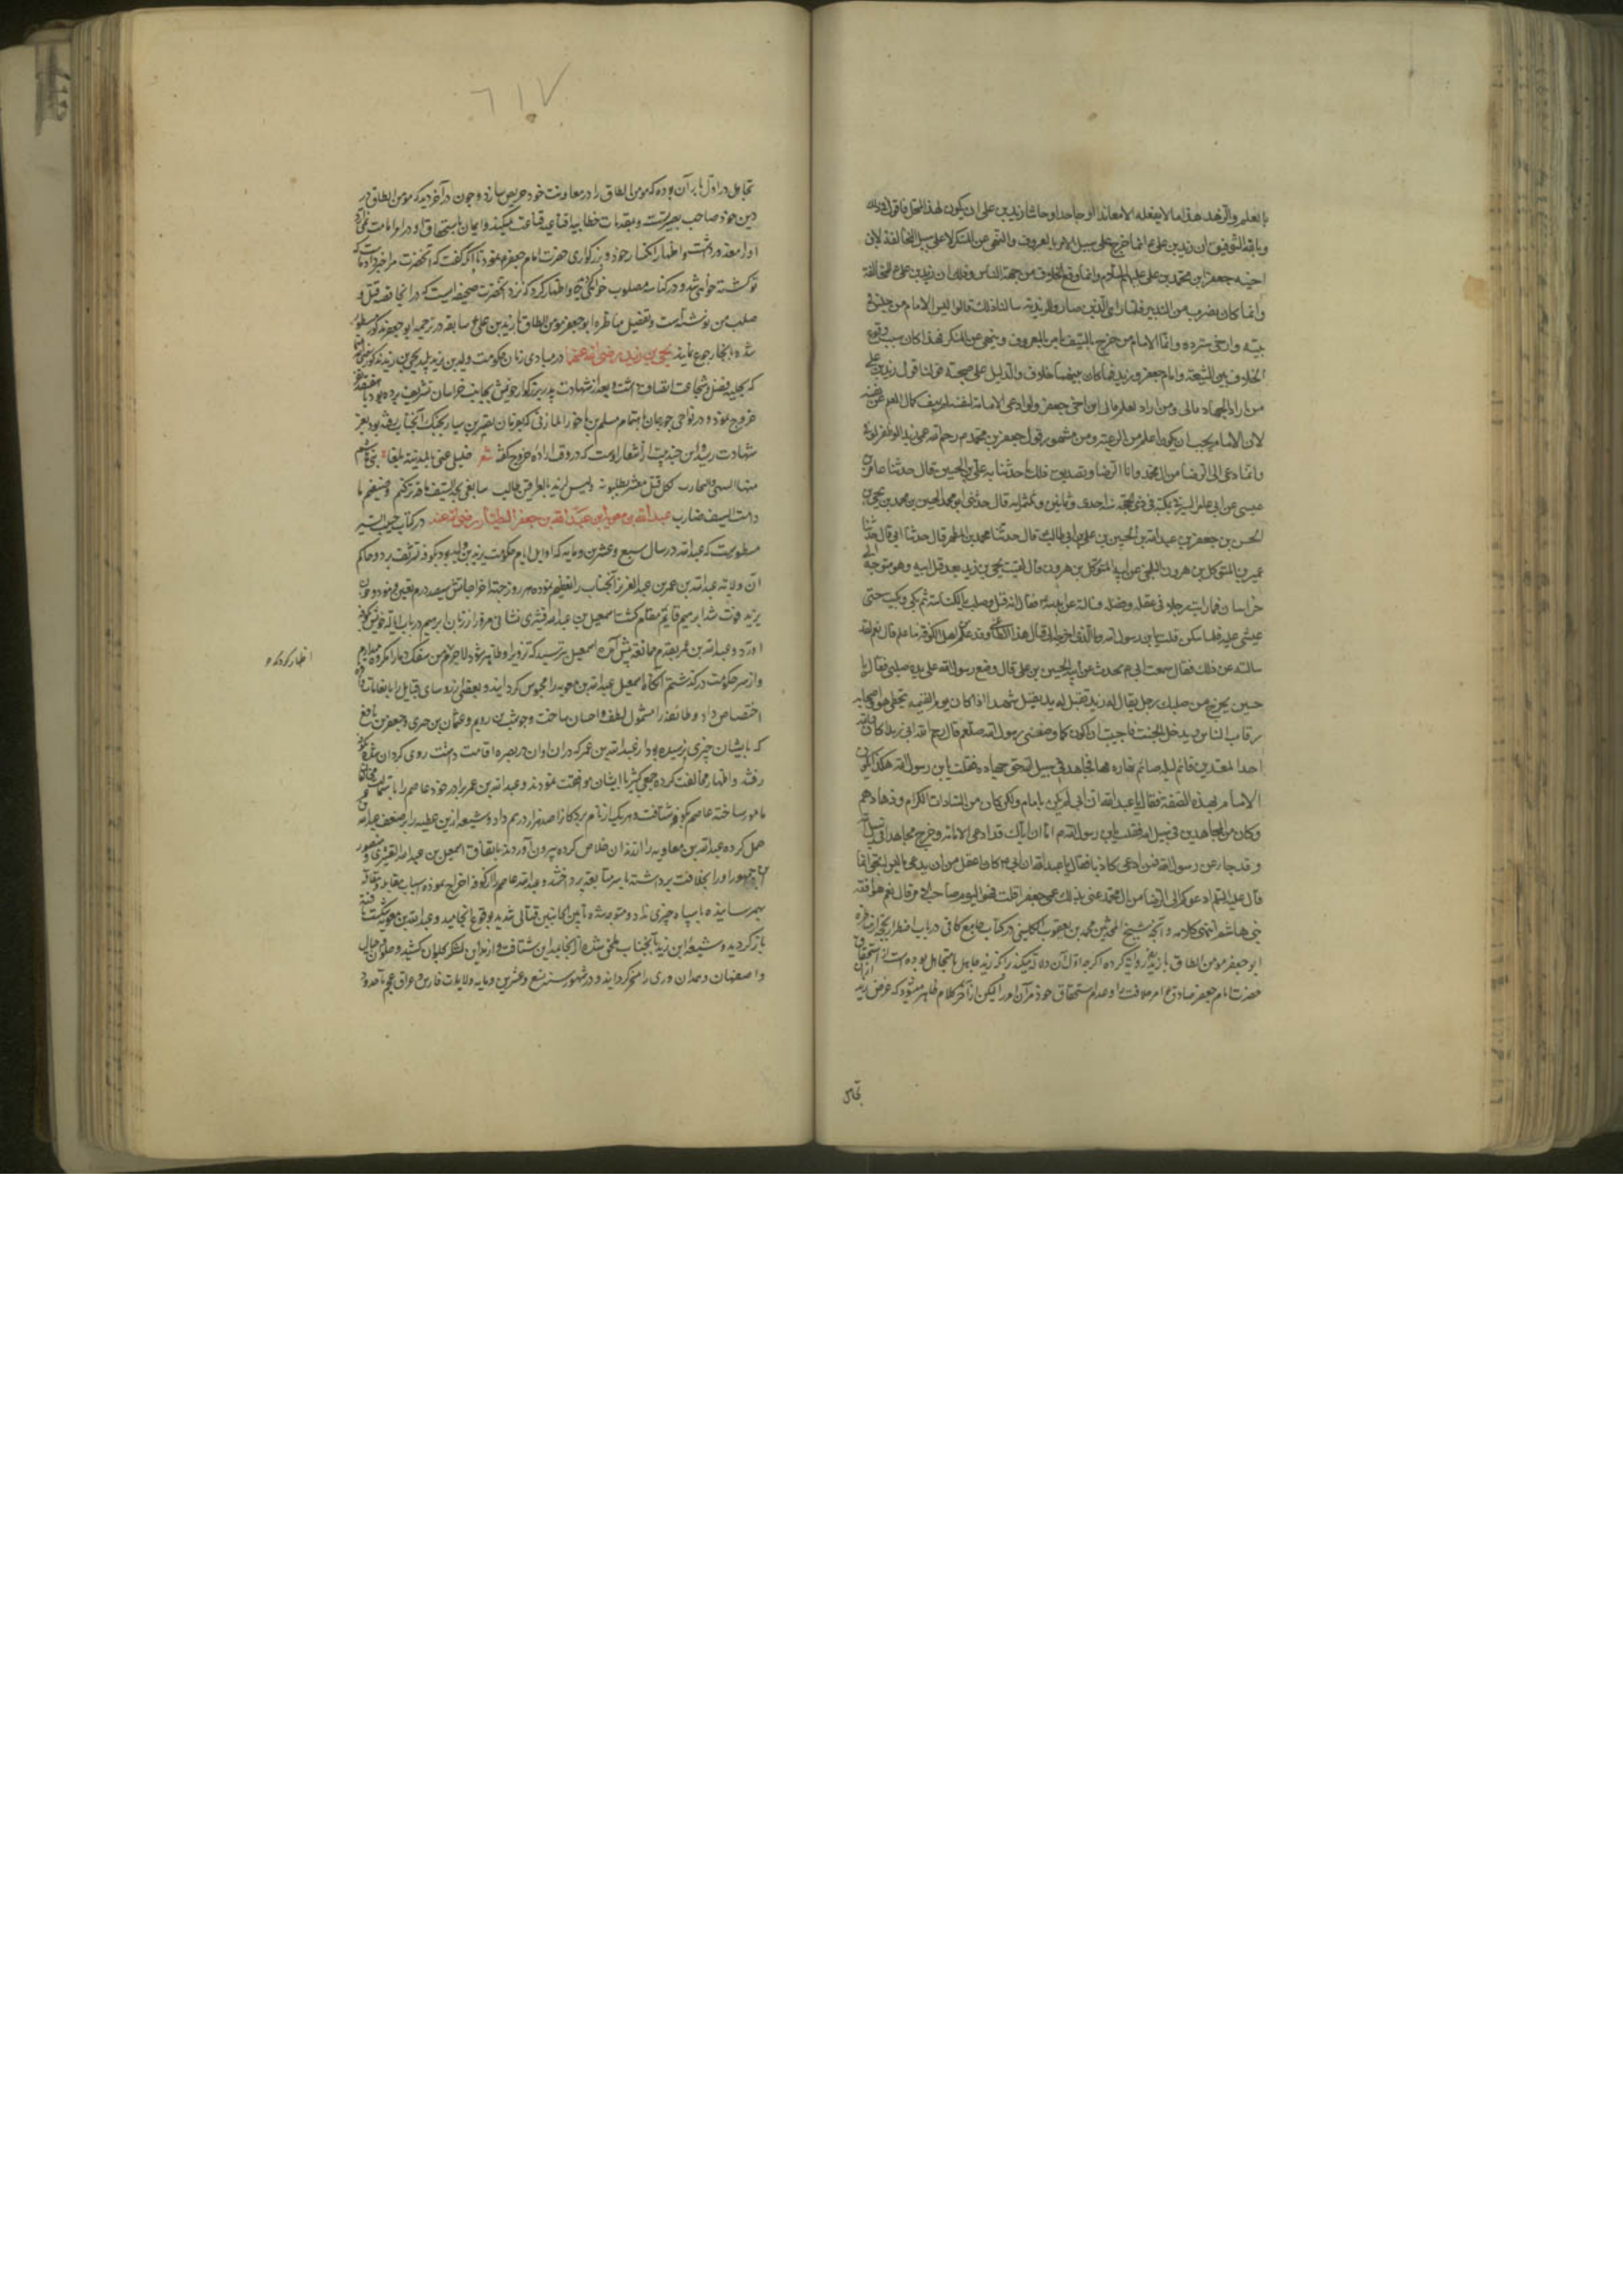 بالعلم والزهد هذا ما لا يفعله الا معاندا او جاحدا و حاشا زيد بن على ان يكون بهذا المحل فاقول في ذلك
و بالله التوفيق ان زيد بن على ع انما خرج على سبيل الامر بالمعروف والنهى عن المنكر لا على سبيل المخالفة لابن
اخيه جعفر بن محمد بن على عليهم السلام وانما وقع الخلاف من جهة الناس و ذلك ان زيد بن على ع
وانما كان بضرب من التدبير فلما راى الذين صاروا للزيدية سالنا ذلك قالوا ليس الامام من جلس في
بيته وارخى ستره وانما الامام من خرج بالسيف يامر بالمعروف وينهى عن المنكر فهذا كان سبب وقوع
الخلاف بين الشيعة واما جعفر و زيد فما كان بينهما خلاف والدليل على صحة قولنا قول زيد بن على
من اراد الجهاد فالى ومن اراد العلم فالى ابن اخى جعفر ولو ادعى الامامة لنفسه لم ينف كمال العلم عن نفسه
لان الامام يجب ان يكون اعلم من الرعية ومن مشهور قول جعفر بن محمد ع رحم الله عمى زيدا لو ظفر لوفا
وانما دعى الى الرضا من آل محمد وانا الرضا وتصديق ذلك ما حدثنا به على بن الحسين قال حدثنا عامر بن
عيسى بن ابى عامر السيرافى بمكة في ذى الحجة سنة احدى وثمانين وثلثمائة قال حدثنى ابو محمد الحسن بن محمد بن يحيى بن
الحسن بن جعفر بن عبيد الله بن الحسين بن على بن ابى طالب قال حدثنا محمد بن المطهر قال حدثنا ابى قال حدثنا
عمير بن المتوكل بن هرون البلخى عن ابيه المتوكل بن هرون قال لقيت يحيى بن زيد بعد قتل ابيه وهو متوجه الى
خراسان فما رايت رجلا في عقله وفضله فسالته عن ابيه ع فقال انه قتل وصلب بالكناسة ثم بكى وبكيت حتى
غشى عليه فلما سكن قلت يا بن رسول الله وما الذى اخرجه الى قتال هذا الطاغى وقد علم من اهل الكوفة ما علم قال نعم لقد
سالته عن ذلك فقال سمعت ابى ع يحدث عن ابيه الحسين بن على قال وضع رسول الله على يده صلبى فقال يا
حسين يخرج من صلبك رجل يقال له زيد يقتل شهيدا اذا كان يوم القيمة يتخطى هو واصحابه
رقاب الناس ويدخل الجنة فاحببت ان اكون كما وصفنى رسول الله صلعم قال رحم الله ابى زيدا كان والله
احد المتعبدين قائم ليله صائم نهاره يجاهد في سبيل الله حق جهاده فقلت يا بن رسول الله هكذا يكون
الامام بهذه الصفة فقال يا عبد الله ان ابى لم يكن بامام ولكن كان من السادات الكرام وزهادهم
وكان من المجاهدين في سبيل الله فقلت يا بن رسول الله اما ان اباك قد ادعى الامامة وخرج مجاهدا في سبيل الله
وقد جاء عن رسول الله فيمن ادعى كاذبا فقال يا عبد الله ان ابى ع كان اعقل من ان يدعى ما ليس له بحق انما
قال عليه السلم ادعوكم الى الرضا من آل محمد عنى بذلك عمى جعفرا قلت فهو اليوم صاحب الامر قال نعم هو افقه
بنى هاشم انتهى كلامه و آنچه شيخ المحدثين محمد بن يعقوب الكلينى در كتاب جامع كافى در باب اضطرار بحجه از مناظره
ابو جعفر مومن الطاق با زيد ع روايه كرده اگرچه اول آن دلالة ميكند بر آنكه زيد جاهل يا متجاهل بوده است از استحقاق
حضرت امام جعفر صادق ع امر خلافت را و عدم استحقاق خود مر آن امر را ليكن از آخر كلام ظاهر ميشود كه غرض زيد از آن
تجاهل
٦١٧
تجاهل در اول بار آن بوده كه مومن الطاق را در معاونت خود حريص سازد و چون در آخر ديد كه مومن الطاق در
دين خود صاحب بصيرتست و بمقدمات خطابيه اقناعيه قناعت نميكند و ايمان باستحقاق او در امر امامت نمى آرد
او را معذور داشت و اظهار انكسار خود و بزرگوارى حضرت امام جعفر ع نمود تا آنكه گفت كه آنحضرت مرا خبر داده كه
تو كشته خواهى شد و در كناسه مصلوب خواهى گرديد و اظهار كرد كه نزد آنحضرت صحيفه ايست كه در آنجا قصه قتل و
صلب من نوشته است و تفصيل مناظره ابو جعفر مومن الطاق با زيد بن على ع سابقه در ترجمه ابو جعفر مذكور مسطور
شده بآنجا رجوع نمايند يحيى بن زيد رضى الله عنهما در مبادى زمان حكومت وليد بن يزيد پليد يحيى بن زيد مذكور رضى الله عنهما
كه بحليه فضل و شجاعت اتصاف داشت و بعد از شهادت پدر بزرگوار خويش بجانب خراسان تشريف برده بود
خروج نمود و در نواحى جورجان باهتمام مسلم بن احوز المازنى كه بفرمان نصر بن سيار بجنگ آنجناب رفته بود بعز
شهادت رسيد و اين چند بيت از اشعار اوست كه در وقت اراده خروج گفته شعر خليلى عنى بالمدينة بلغا بنى هاشم
لكل قتيل معشر يطلبونه وليس لزيد بالعراقين طالب
عبد الله بن معوية بن عبد الله بن جعفر الطيار رضى الله عنه در كتاب حبيب السير
مسطورست كه عبد الله در سال سبع و عشرين و مايه كه اوايل ايام حكومت يزيد بن وليد بود بكوفه تشريف برد و حاكم
آن ولايه عبد الله بن عمر بن عبد العزيز آنجناب را تعظيم نموده هر روز جهة اخراجاتش سيصد درم تعيين فرمود و چون
يزيد فوت شد ابراهيم قايم مقام گشت اسمعيل بن عبد الله قشرى نشانى مزور از زبان ابراهيم در باب ايالة خويش بكوفه
آورد و عبد الله بن عمر بقدم ممانعة پيش آمده اسمعيل بترسيد كه تزوير او ظاهر شود لاجرم من سفك دما را مكروه ميدارم
و از سر حكومت در گذشتم آنگاه اسمعيل عبد الله بن معويه را محبوس گردانيد و بعضى از روساى قبايل را بانعامات
اختصاص داد و طائفه را مشمول لطف و احسان ساخت و حوشب بن رويم و عثمان بن حرى و جعفر بن نافع
كه بايشان چيزى نرسيده بود از عبد الله بن عمر كه در ان اوان در بصره اقامت داشت روى گردان شده
رفتند و اظهار مخالفت كرده جمعى كثير با ايشان موافقت نمودند و عبد الله بن عمر برادر خود عاصم را
مامور ساخته عاصم بكوفه شتافت و هر يك از نام بردگان را صد هزار درم داد و شيعه ازين عطيه را بر ضعف عبد الله
حمل كرده عبد الله بن معاويه را از زندان خلاص كرده بيرون آوردند باتفاق اسمعيل بن عبد الله القشيرى و منصور
بن جمهور او را بخلافت برداشته بامر متابعة پرداختند و عبد الله عاصم را از كوفه اخراج نموده
بهم رسانيده با سپاه چيزى نداد و متوجه شده بين الجانبين قتالى شديد بوقوع انجاميد و عبد الله بن معويه شكست يافته
باز گرديد و شيعه ابن زياد آنجناب ملحق شده از آنجا بمداين شتافت و از مداين لشكر بحلوان كشيد و حلوان و جبال
و اصفهان و همدان و رى را مسخر گردانيد و در شهور سنه تسع و عشرين و مايه ولايات فارس و عراق عجم تا حدود
اظهار كرد كه